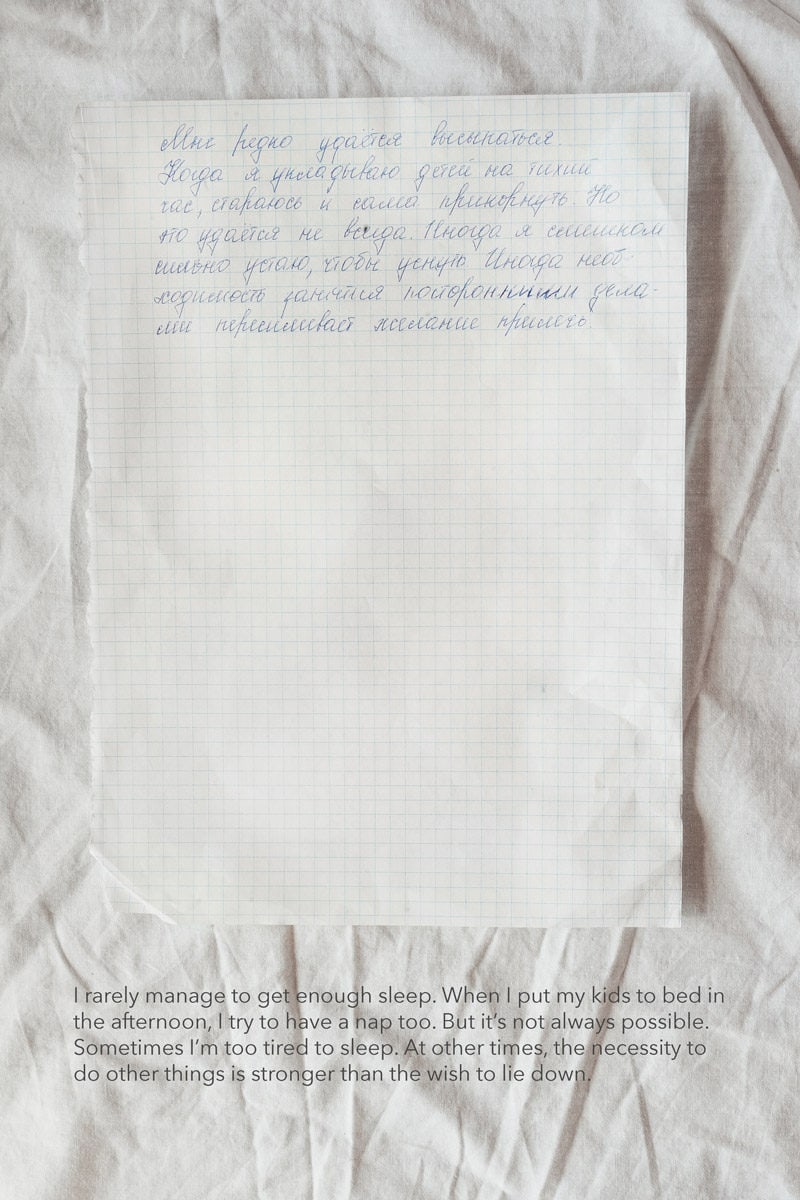 Мне редко удаётся высыпаться.
Когда я укладываю детей на тихий
час, стараюсь и сама прикорнуть. Но
это удаётся не всегда. Иногда я слишком
сильно устаю, чтобы уснуть. Иногда необ-
ходимость занятия посторонними дела-
ми пересиливает желание прилечь.
I rarely manage to get enough sleep. When I put my kids to bed in
the afternoon, I try to have a nap too. But it’s not always possible.
Sometimes I’m too tired to sleep. At other times, the necessity to
do other things is stronger than the wish to lie down.